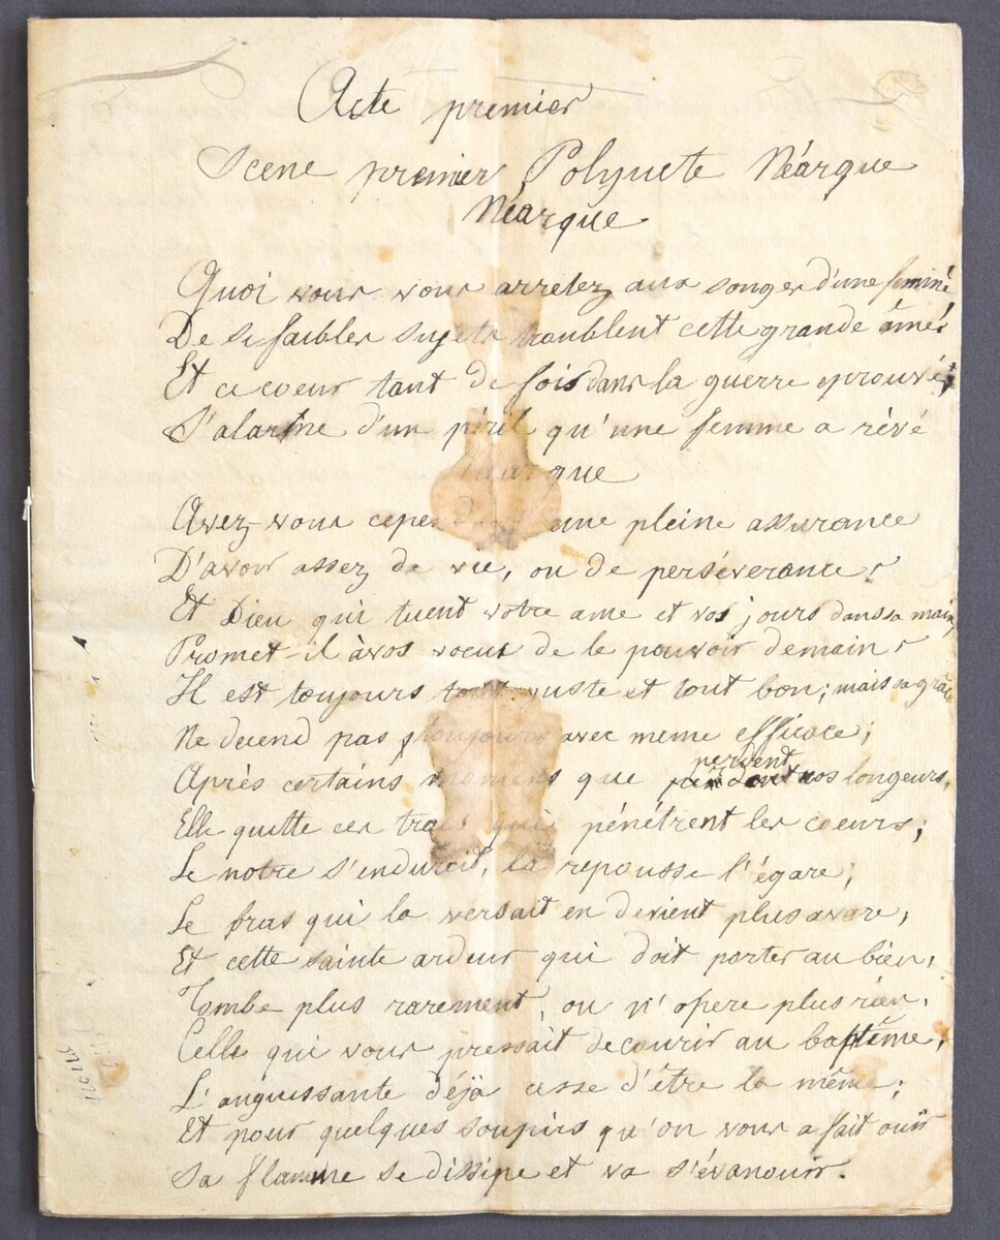 Acte premier
Scene premier Polyucte Néarque
Néarque
Quoi vous vous arretez aux songes d'une femme,
De si faibles sujets troublent cette grande âmes
Et ce coeur tant de fois dans la guerre eprouvé,
S'alarme d'un péril qu'une femme a rèvé
Néarque
Avez-vous cependant une pleine assurance
D'avoir assez de vie, ou de perséverance?
Et Dieu qui tuent votre ame et vos jours dans sa main,
Promet-il à vos voeux de le pouvoir demain?
Il est toujours tout juste et tout bon; mais sa grâce
Ne decend pas toujours avec meme efficace;
Après certains momens que perdent nos longeurs,
Elle quitte ces traits qui pénétrent les coeurs;
Le notre s'endurcit, la repousse l'égare;
Le bras qui la versait en devient plus avare,
Et cette sainte ardeur qui doit porter au bien,
Tombe plus rarement, ou n'opere plus rien.
Celle qui vous pressait de courir au baptême,
L'anguissante déjà cesse d'être la même;
Et pour quelques soupirs qu'on vous a fait ouïr
Sa flamme se dissipe et va s'évanouir.